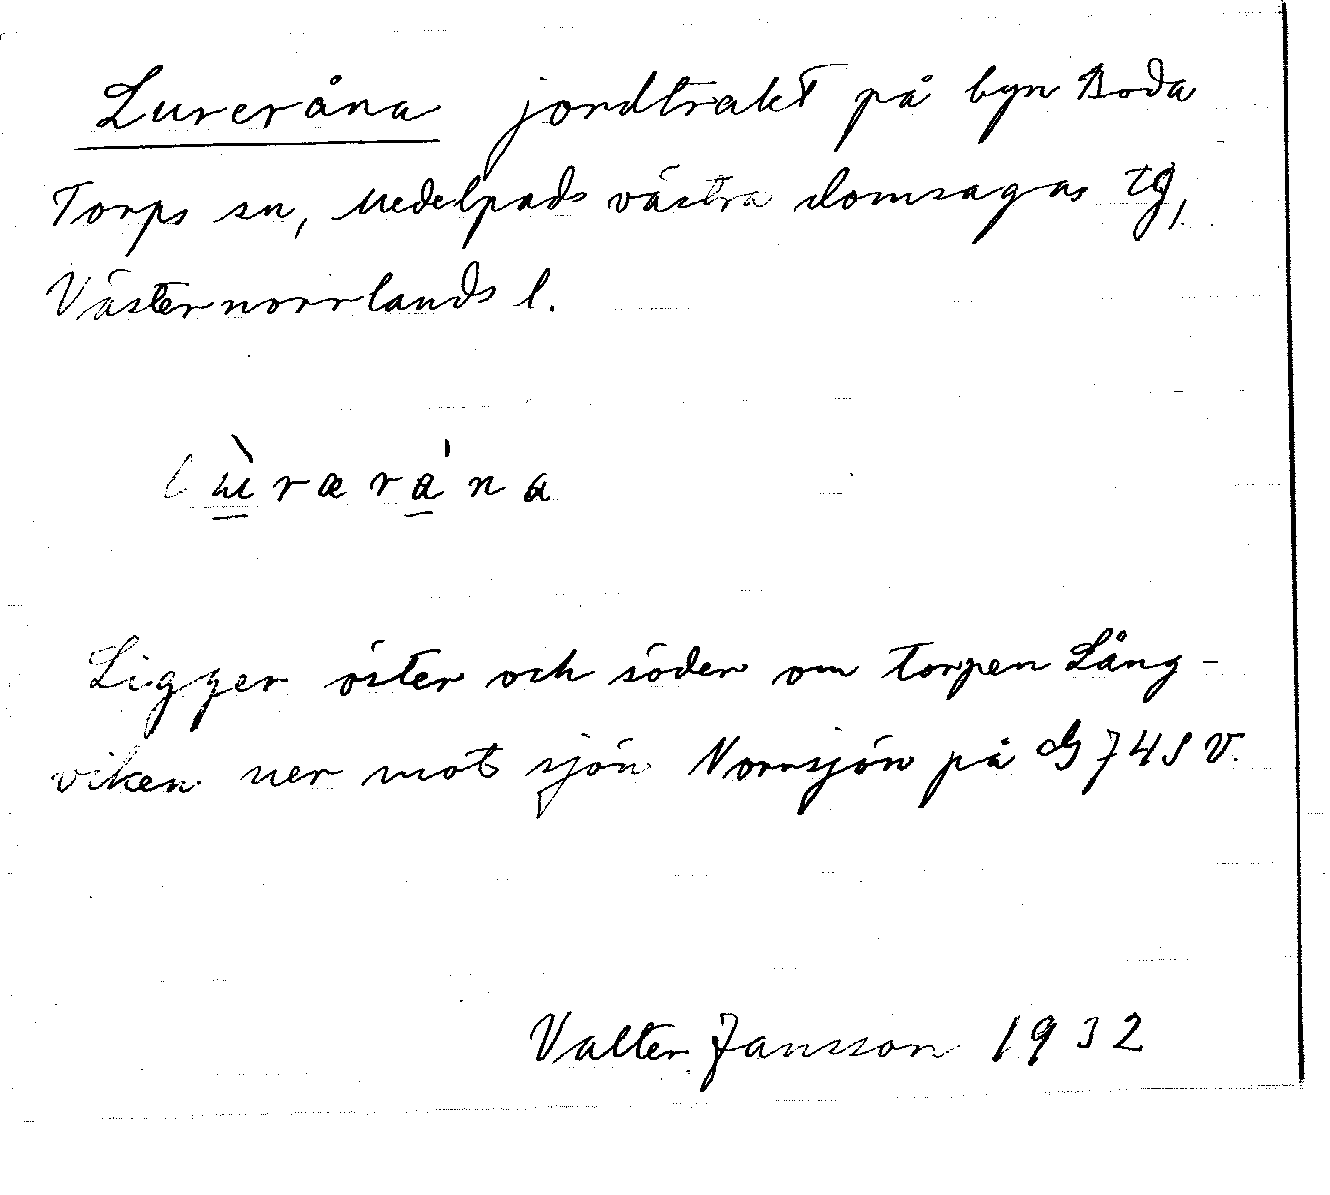 Lureråna jordtrakt på byn Boda
Torps sn, Medelpads västra domsagas tg,
Västernorrlands l.
lùræråna
Ligger öster och söder om torpen Lång-
viken ner mot sjön Norrsjön på G 74 S V.
Valter Jansson 1932